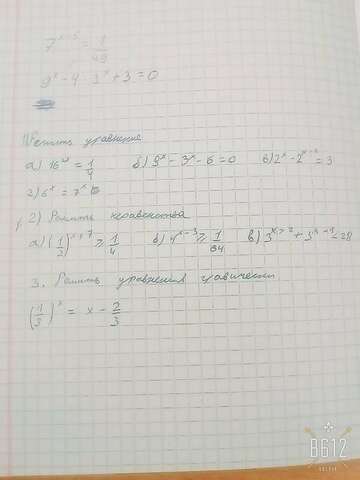 7^(x-5) = 1/49
9^x - 4 · 3^x + 3 = 0
1) Решить уравнение
а) 16^x = 1/4 б) 9^x - 3^x - 6 = 0 в) 2^x - 2^(x-2) = 3
г) 6^x = 7^x
2) Решить неравенства
а) (1/2)^(x+7) ≥ 1/4 б) 4^(x-3) ≥ 1/64 в) 3^(x+2) + 3^(x-1) = 28
3. Решить уравнения
(1/3)^x = x - 2/3
B612